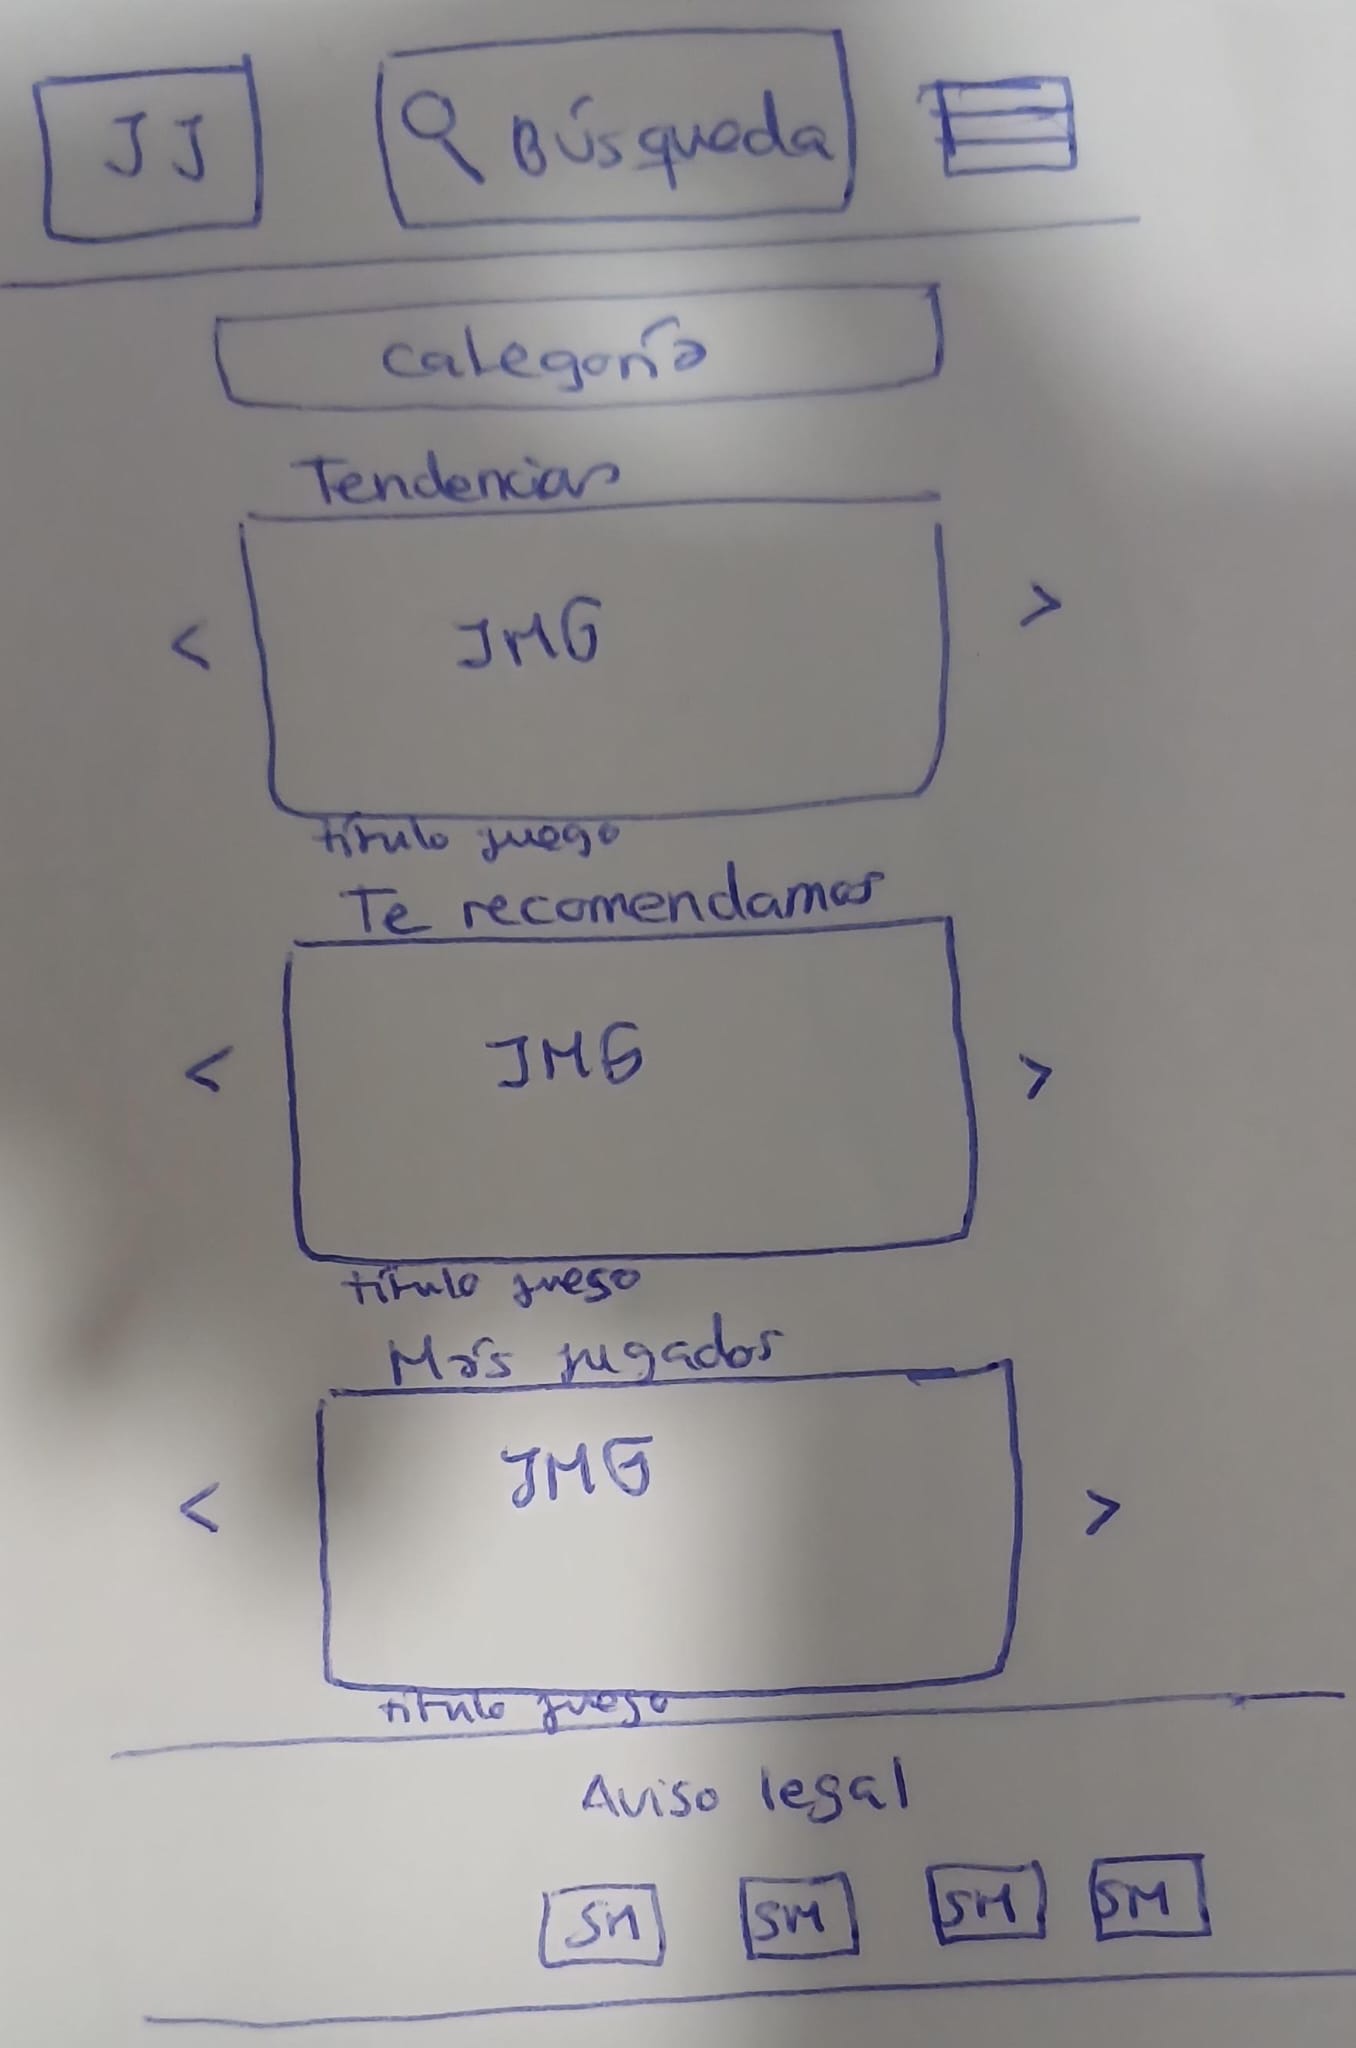 JJ Búsqueda
Categoría
Tendencias
< IMG >
título juego
Te recomendamos
< IMG >
título juego
Más jugados
< IMG >
título juego
Aviso legal
SM SM SM SM